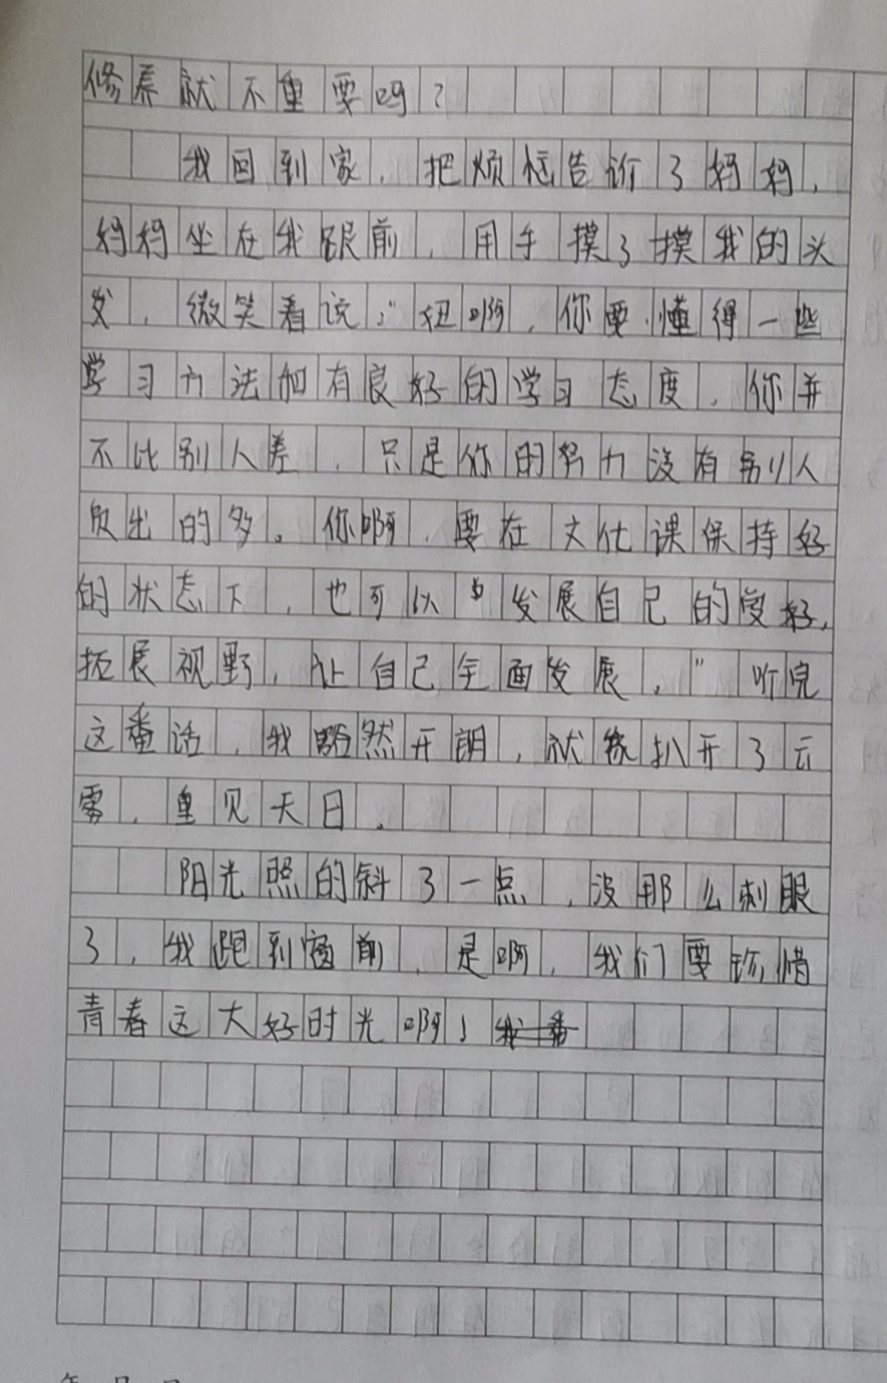 修养就不重要吗？
我回到家，把烦恼告诉了妈妈，
妈妈坐在我跟前，用手摸了摸我的头
发，微笑着说：“妞啊，你要懂得一些
学习方法和有良好的学习态度，你并
不比别人差，只是你的努力没有别人
付出的多。你啊，要在文化课保持好
的状态下，也可以发展自己的爱好，
拓展视野，让自己全面发展。”听完
这番话，我豁然开朗，就像扒开了云
雾，重见天日。
阳光照的斜了一点，没那么刺眼
了，我跑到窗前，是啊，我们要珍惜
青春这大好时光啊！